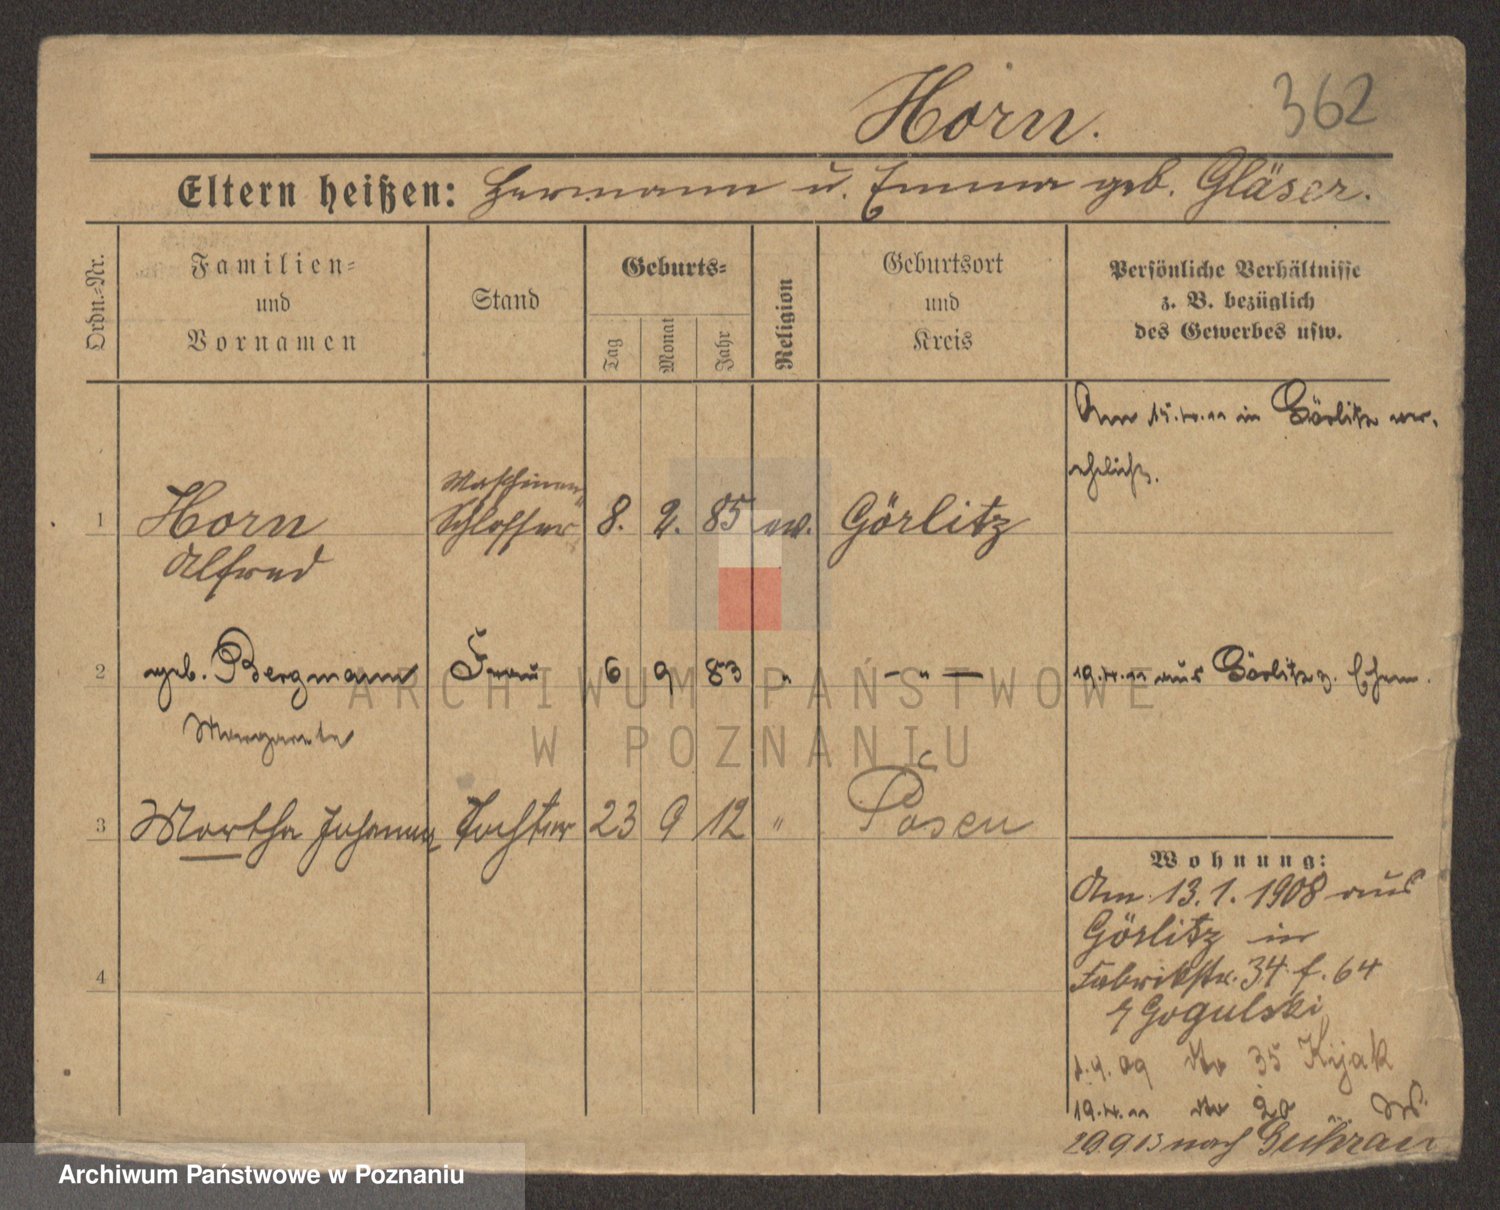 Horn.
362
Eltern heißen: Hermann u. Emma geb. Gläser.
Ordn.-Nr.
Familien-
und
Vornamen
Stand
Geburts-
Tag
Monat
Jahr
Religion
Geburtsort
und
Kreis
Persönliche Verhältnisse
z. B. bezüglich
des Gewerbes usw.
Am 15. in Görlitz ver-
ehelicht.
1 Horn Maschinen- 8. 2. 85 ev. Görlitz
Alfred Schlosser
2 geb. Bergmann Frau 6 9 83 " — " — 19. aus Görlitz z. Ehem.
Margarete
3 Martha Johanna Tochter 23 9 12 " Posen
4
Wohnung:
Am 13.1.1908 aus
Görlitz in
Fabrikstr. 34 f. 64
Gogulski
1.9.09 dto 35 Kijak
19. dto 20
nach Guhrau
ARCHIWUM PAŃSTWOWE
W POZNANIU
Archiwum Państwowe w Poznaniu